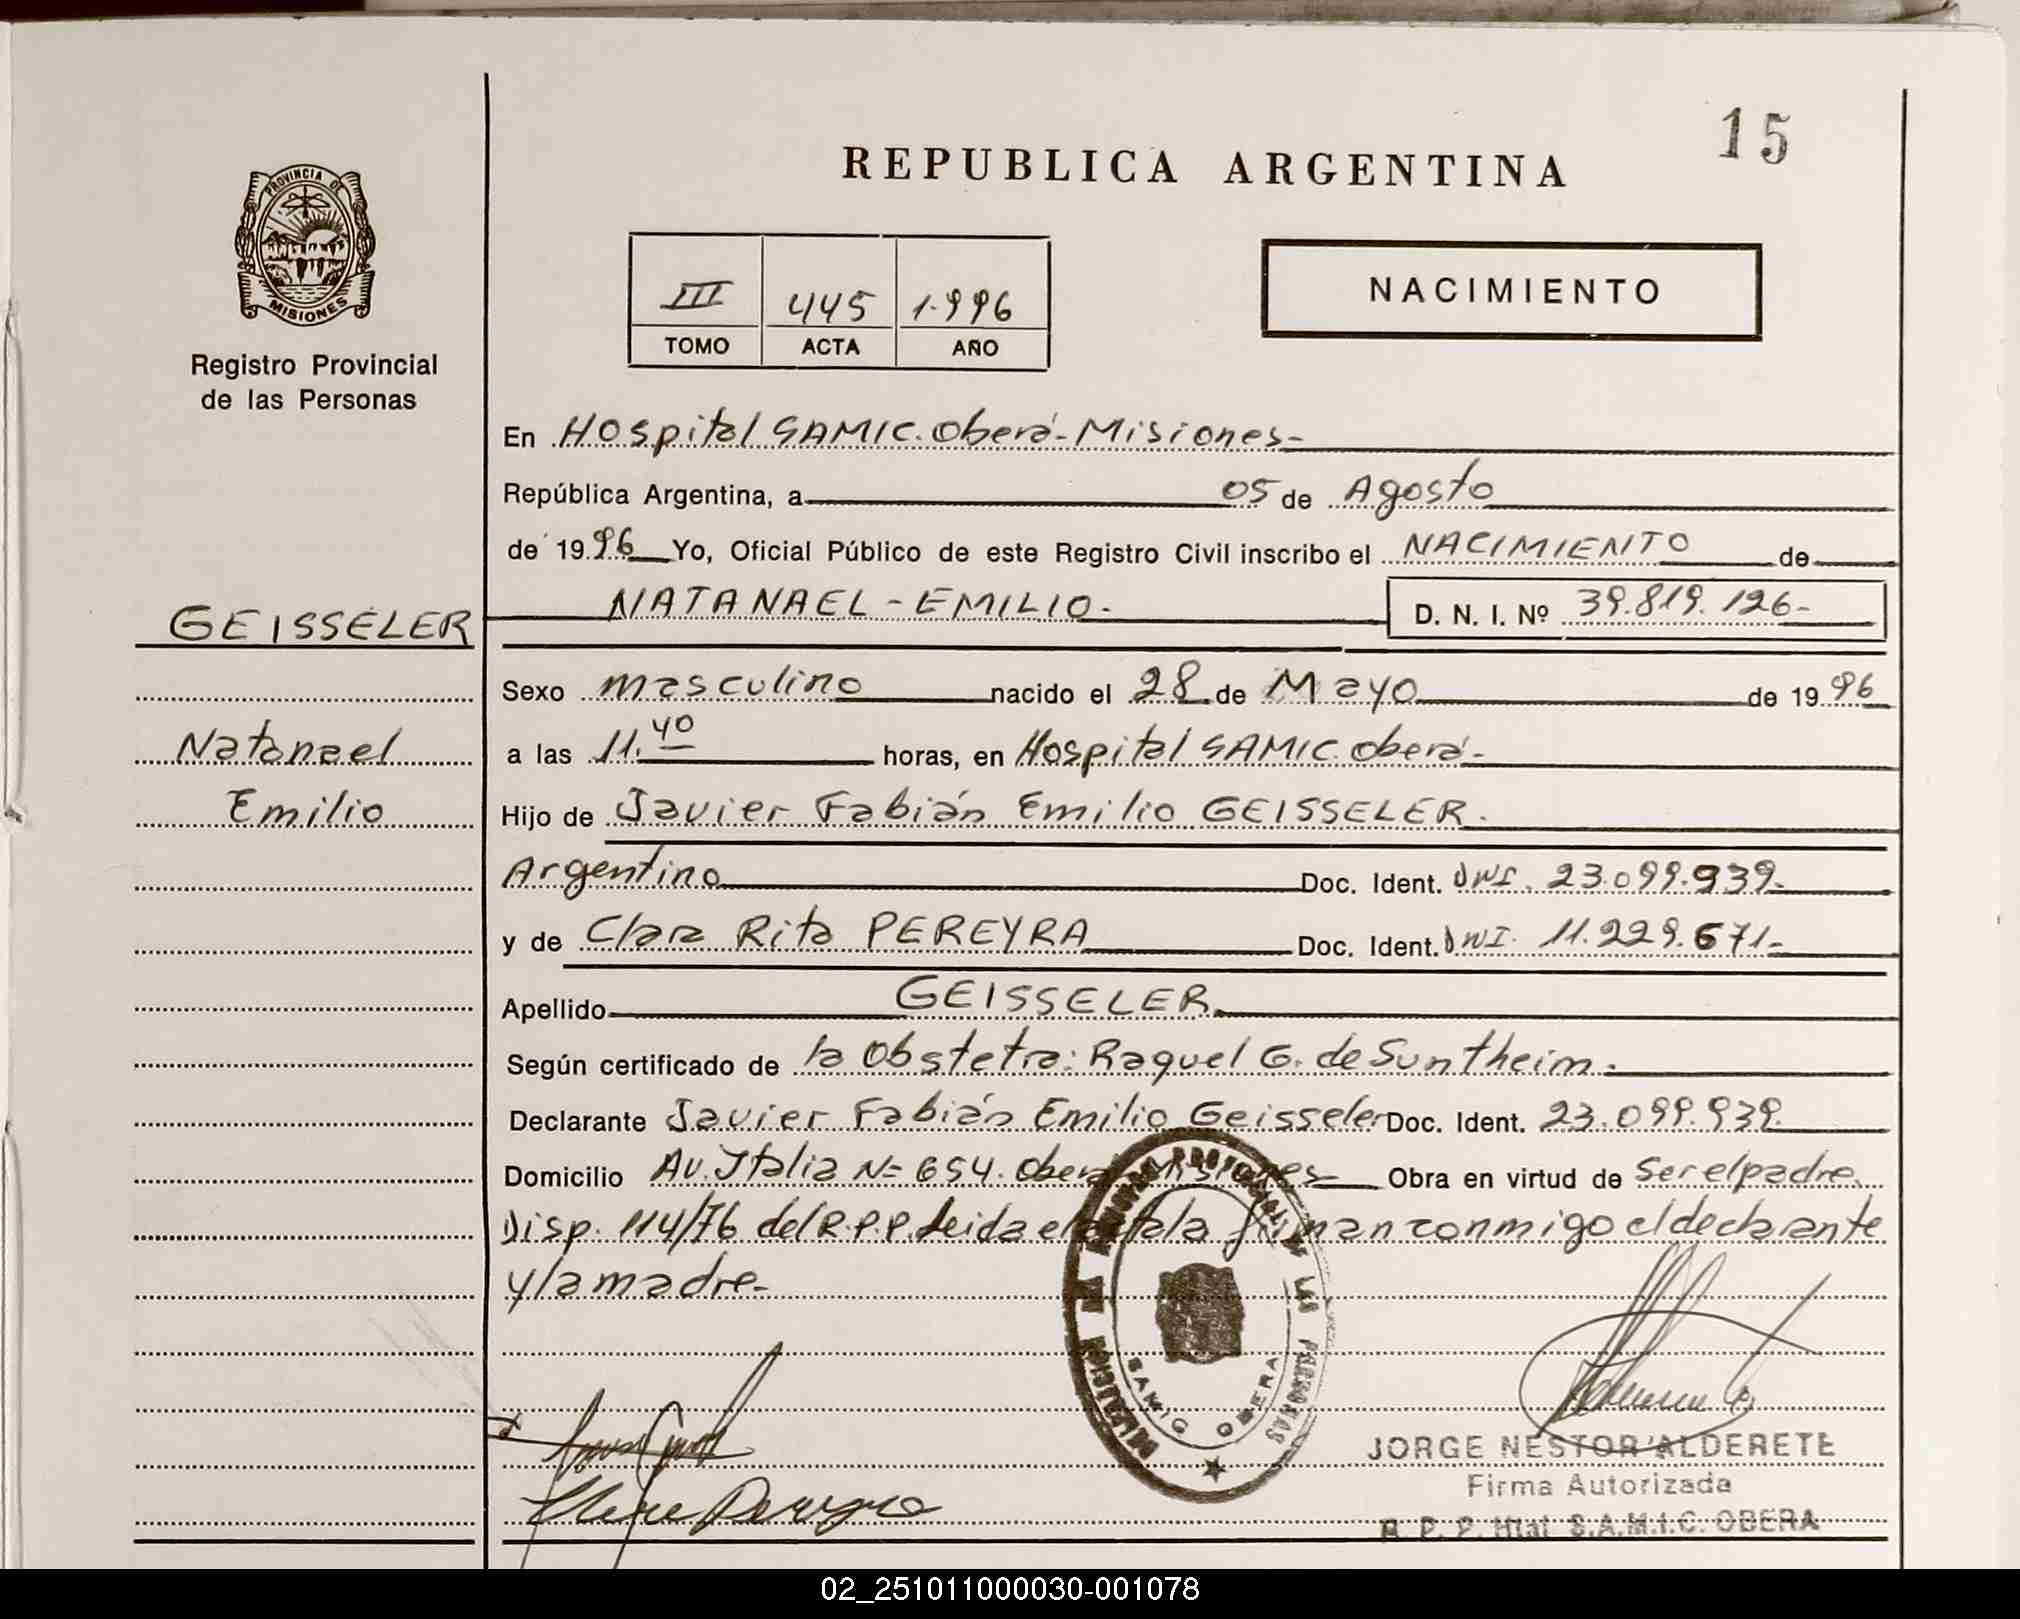 15
REPUBLICA ARGENTINA
PROVINCIA DE
MISIONES
Registro Provincial
de las Personas
III 445 1.996
TOMO ACTA AÑO
NACIMIENTO
En Hospital SAMIC. Oberá-Misiones-
República Argentina, a 05 de Agosto
de 1996 Yo, Oficial Público de este Registro Civil inscribo el NACIMIENTO de
GEISSELER
NATANAEL-EMILIO.
D. N. I. Nº 39.819.126-
Sexo masculino nacido el 28 de Mayo de 1996
Natanael
a las 11.40 horas, en Hospital SAMIC. Oberá-
Emilio
Hijo de Javier Fabián Emilio GEISSELER.
Argentino Doc. Ident. DNI. 23.099.939.
y de Clara Rita PEREYRA Doc. Ident. DNI. 11.229.671-
Apellido GEISSELER
Según certificado de la Obstetra: Raquel G. de Suntheim.
Declarante Javier Fabián Emilio Geisseler Doc. Ident. 23.099.939.
Domicilio Av. Italia Nº 654. Oberá Misiones Obra en virtud de Ser el padre.
Disp. 114/76 del R.P.P. Leida el acta la firman conmigo el declarante
y la madre-
DELEGACION REGISTRO PROVINCIAL DE LAS PERSONAS
SAMIC OBERA
JORGE NESTOR ALDERETE
Firma Autorizada
R. P. P. Htal S.A.M.I.C. OBERA
02_251011000030-001078